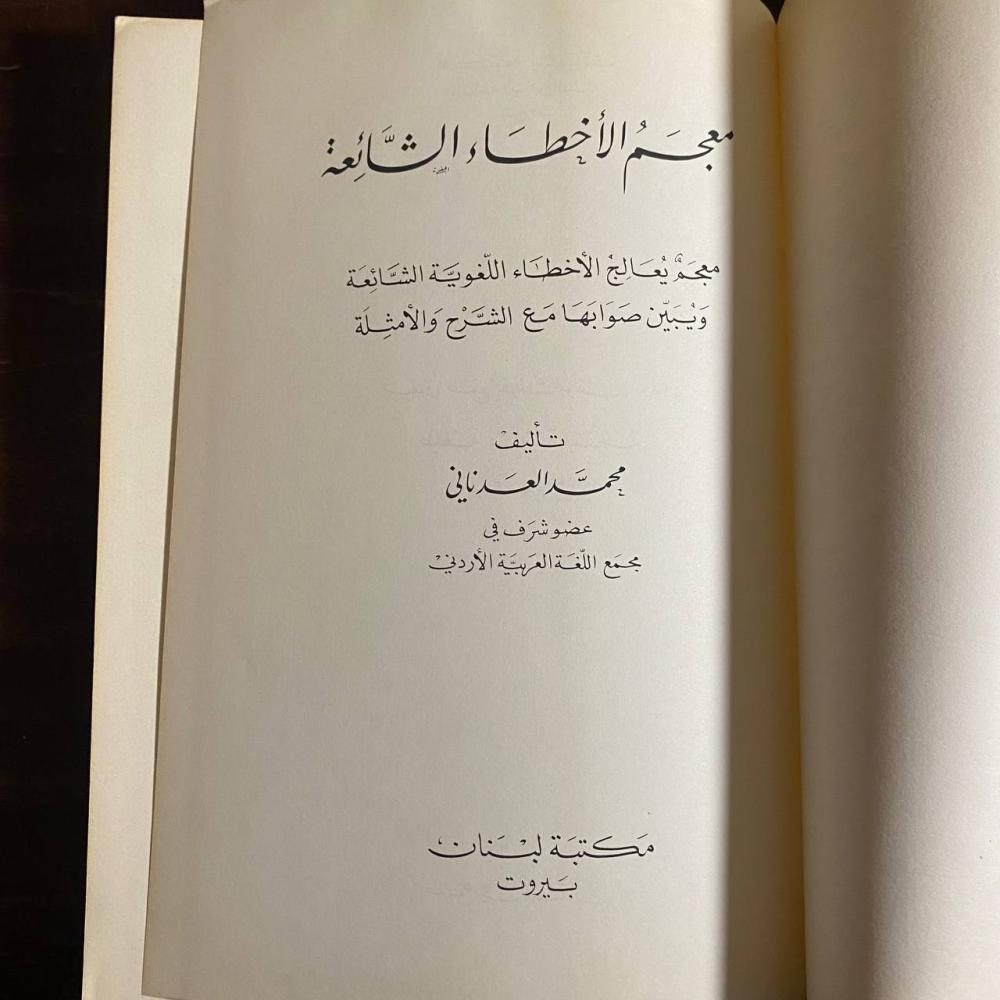 معجَمُ الأخطَاء الشَّائِعة
معجَمٌ يُعَالِجُ الأخطَاء اللّغويَّة الشَّائِعَة
وَيُبَيّن صَوَابَهَا مَع الشَّرْح وَالأمثِلَة
تأليفْ
محمَّد العَدنَاني
عضو شرَف في
مجمَع اللّغَة العَربيَّة الأردنيْ
مَكتبَة لبْنَان
بَيروت